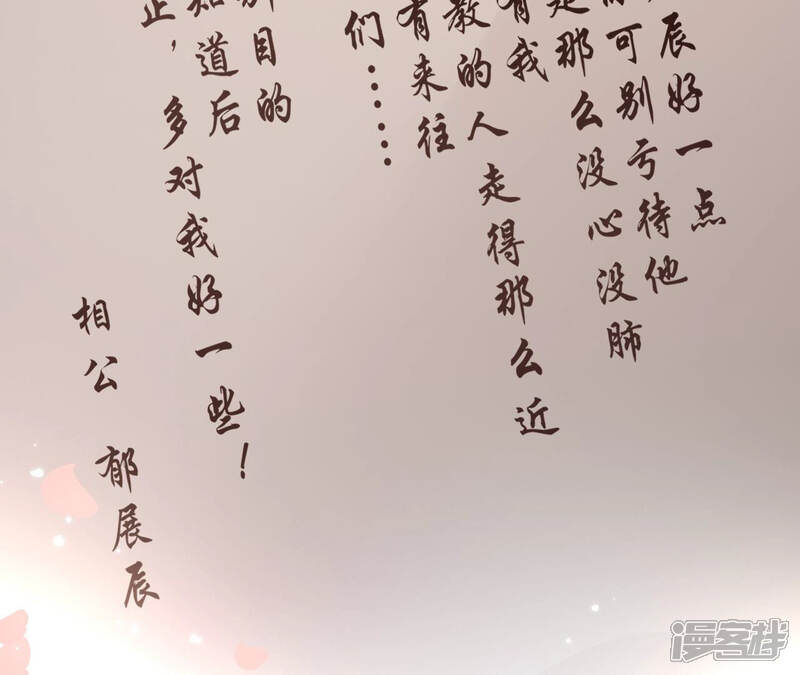 辰好一点
可别亏待他
是那么没心没肺
有我
教的人走得那么近
有来往
们……
别目的
知道后
正，多对我好一些！
相公 郁展辰
漫客栈